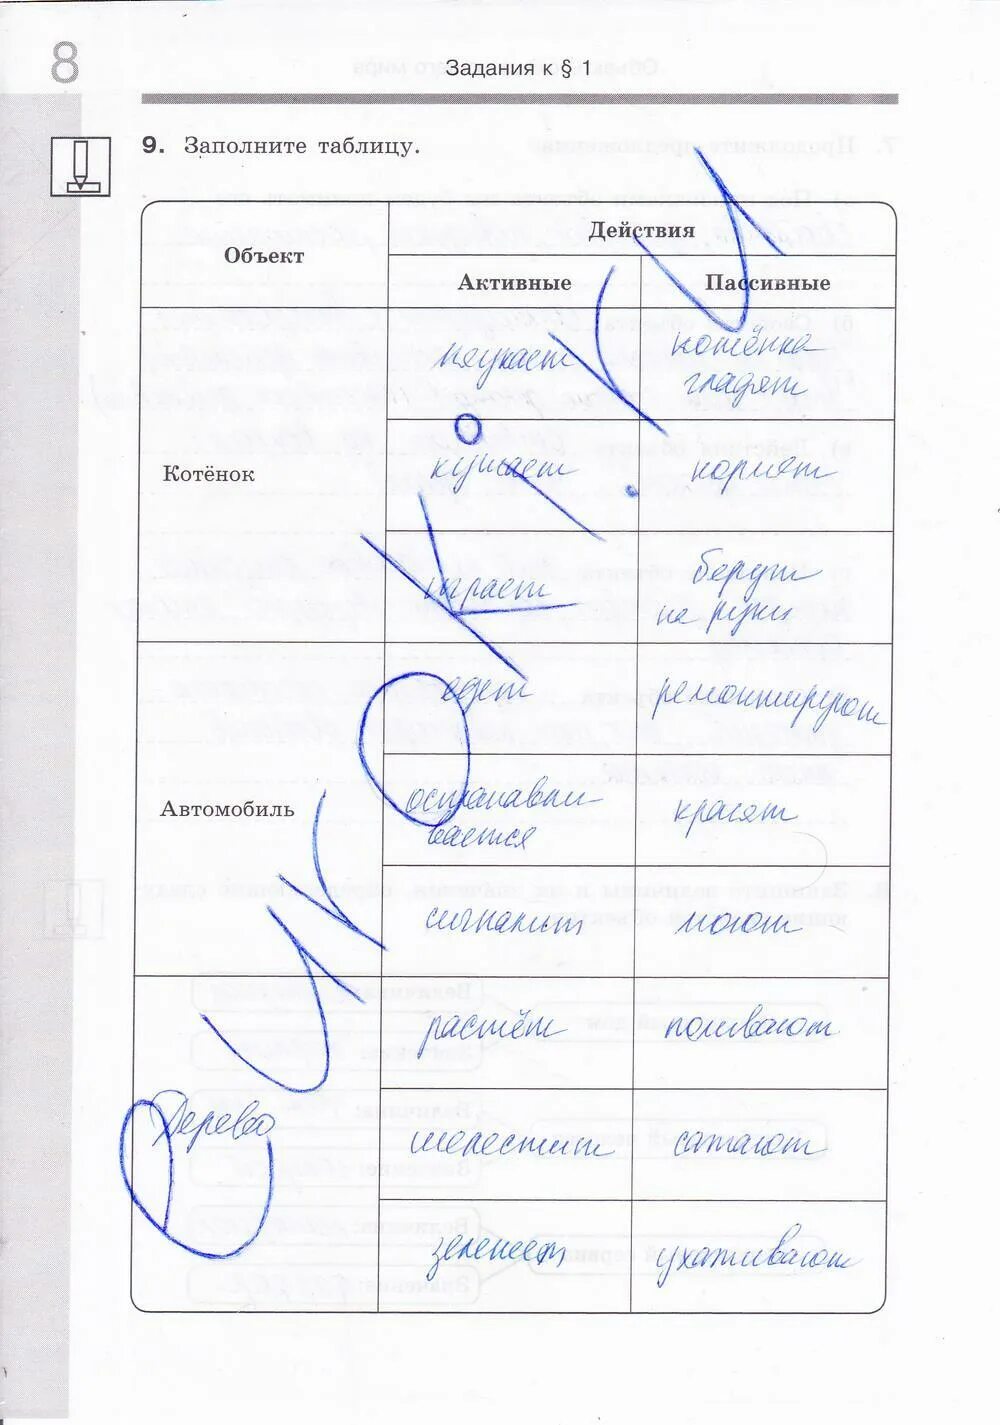 8
Задания к § 1
9. Заполните таблицу.
Объект
Действия
Активные
Пассивные
Котёнок
мяукает
котёнка
гладят
кушает
кормят
играет
берут
на руки
Автомобиль
едет
ремонтируют
останавли
вается
красят
сигналит
моют
Дерево
растёт
поливают
шелестит
сажают
зеленеет
ухаживают